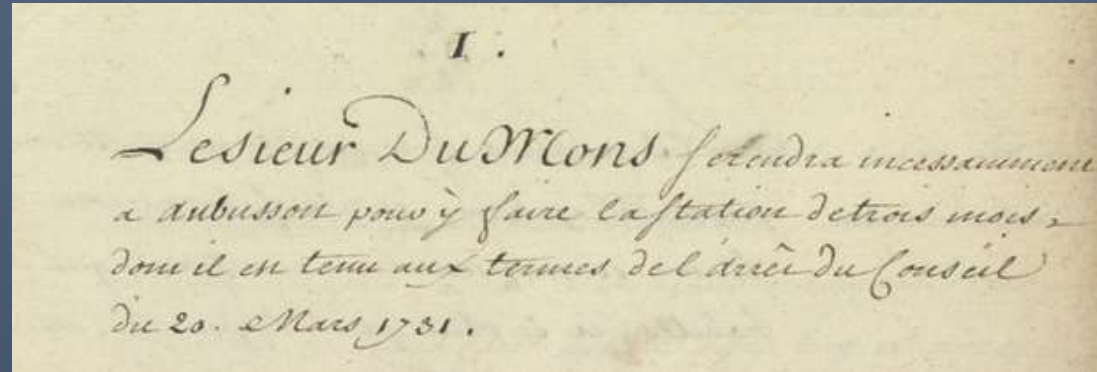 I.
Le sieur Du Mons se rendra incessamment
a aubusson pour ÿ faire la station de trois mois
dont il est tenu aux termes de l'arrêt du Conseil
du 20. Mars 1731.